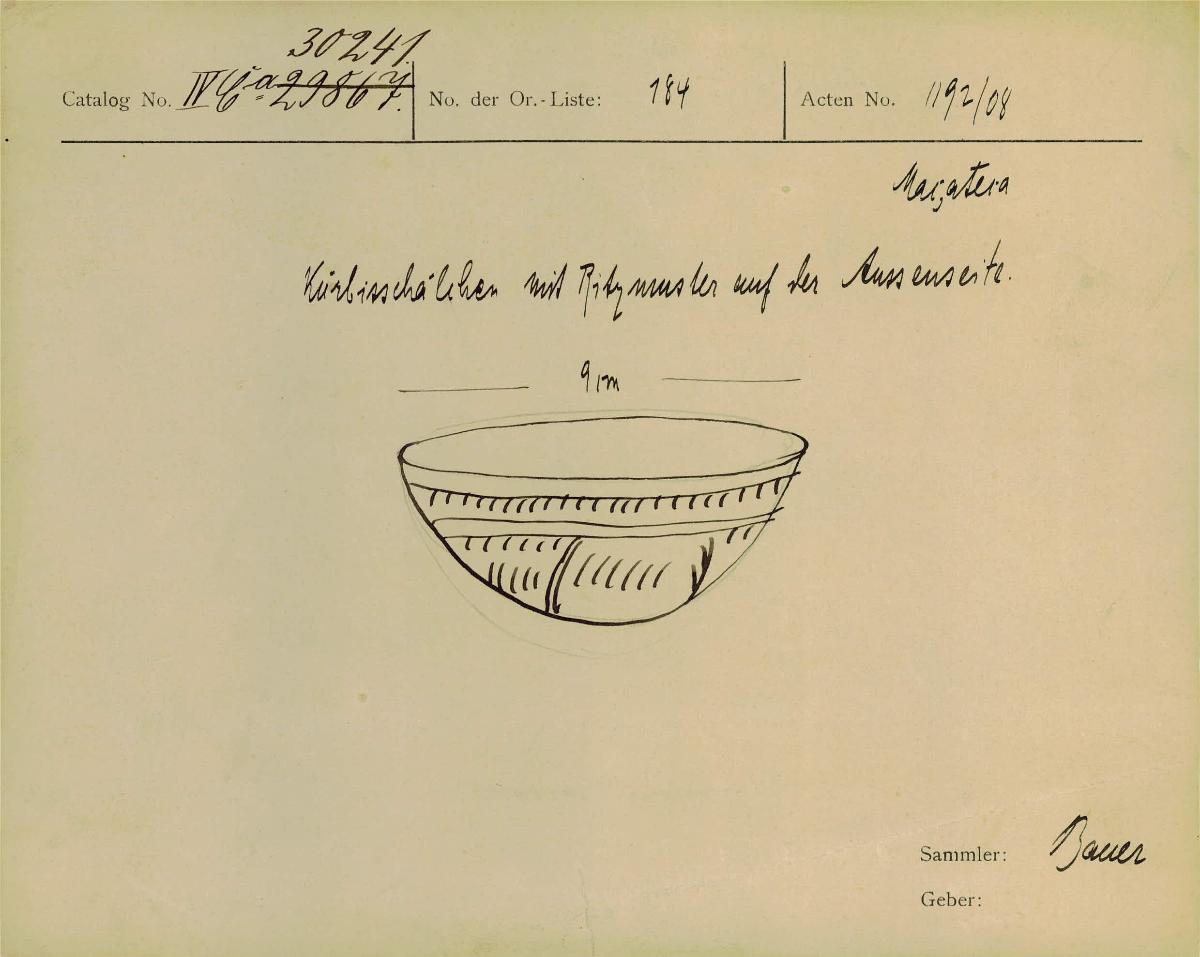 30241.
Catalog No. IV Ca 29867. No. der Or.-Liste: 184 Acten No. 1192/08
Maçateca
Kürbisschälchen mit Ritzmuster auf der Aussenseite.
9 cm
Sammler: Bauer
Geber: